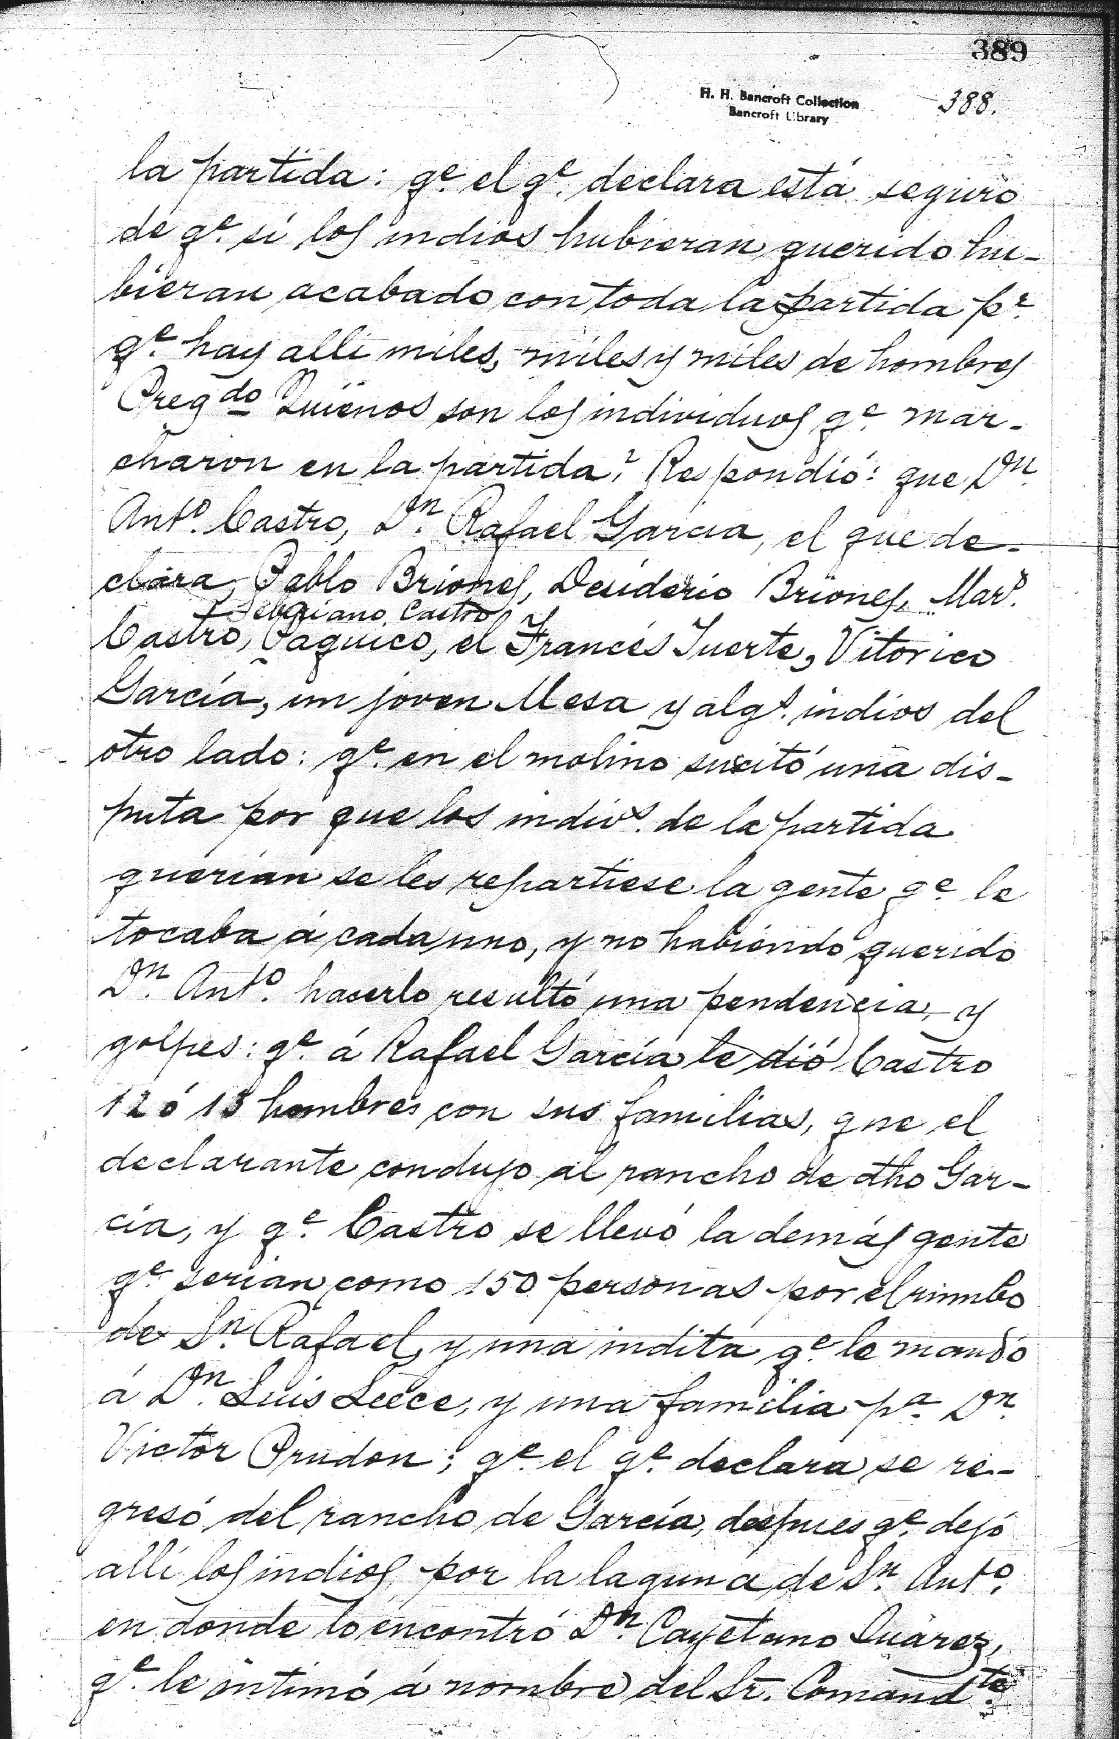 389
H. H. Bancroft Collection
Bancroft Library
388.
la partida: qe. el qe. declara está seguro
de qe. si los indios hubieran querido hu-
bieran acabado con toda la partida pr.
qe. hay alli miles, miles y miles de hombres
Pregdo Quienes son los individuos qe. mar-
charon en la partida? Respondió: que Dn.
Anto. Castro, Dn. Rafael Garcia, el que de-
clara, Pablo Briones, Desiderio Briones, Mar.
Sebriano Castro
Castro, Paquico, el Francés Fuerte, Vitorico
García, un joven Mesa y algs. indios del
otro lado: qe. en el molino sucitó una dis-
puta por que los indivs. de la partida
querian se les repartiese la gente qe. le
tocaba á cada uno, y no habiendo querido
Dn. Anto. hacerlo resultó una pendencia, y
golpes: qe. á Rafael García le dió Castro
12 ó 13 hombres con sus familias, que el
declarante condujo al rancho de dho Gar-
cia, y qe. Castro se llevó la demás gente
qe. serian como 150 personas por el rumbo
de Sn. Rafael, y una indita qe. le mandó
á Dn. Luis Leece, y una familia pa. Dn.
Victor Prudon; qe. el qe. declara se re-
gresó del rancho de García, despues qe. dejó
allí los indios, por la laguna de Sn. Anto.
en donde lo encontró Dn. Cayetano Juárez,
qe. le intimó á nombre del Sr. Comandte.